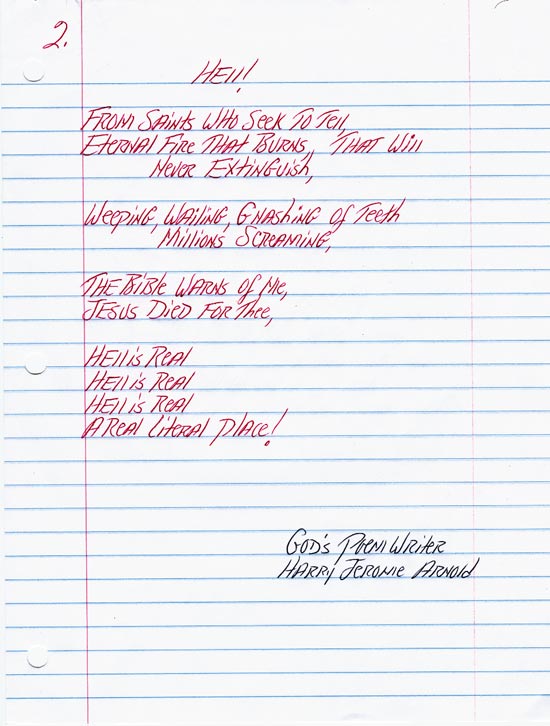 2.
Hell!
From Saints Who Seek To Tell,
Eternal Fire That Burns, That Will
Never Extinguish,
Weeping, Wailing, Gnashing of Teeth
Millions Screaming,
The Bible Warns of Me,
Jesus Died For Thee,
Hell is Real
Hell is Real
Hell is Real
A Real Literal Place!
God's Poem Writer
Harry Jerome Arnold